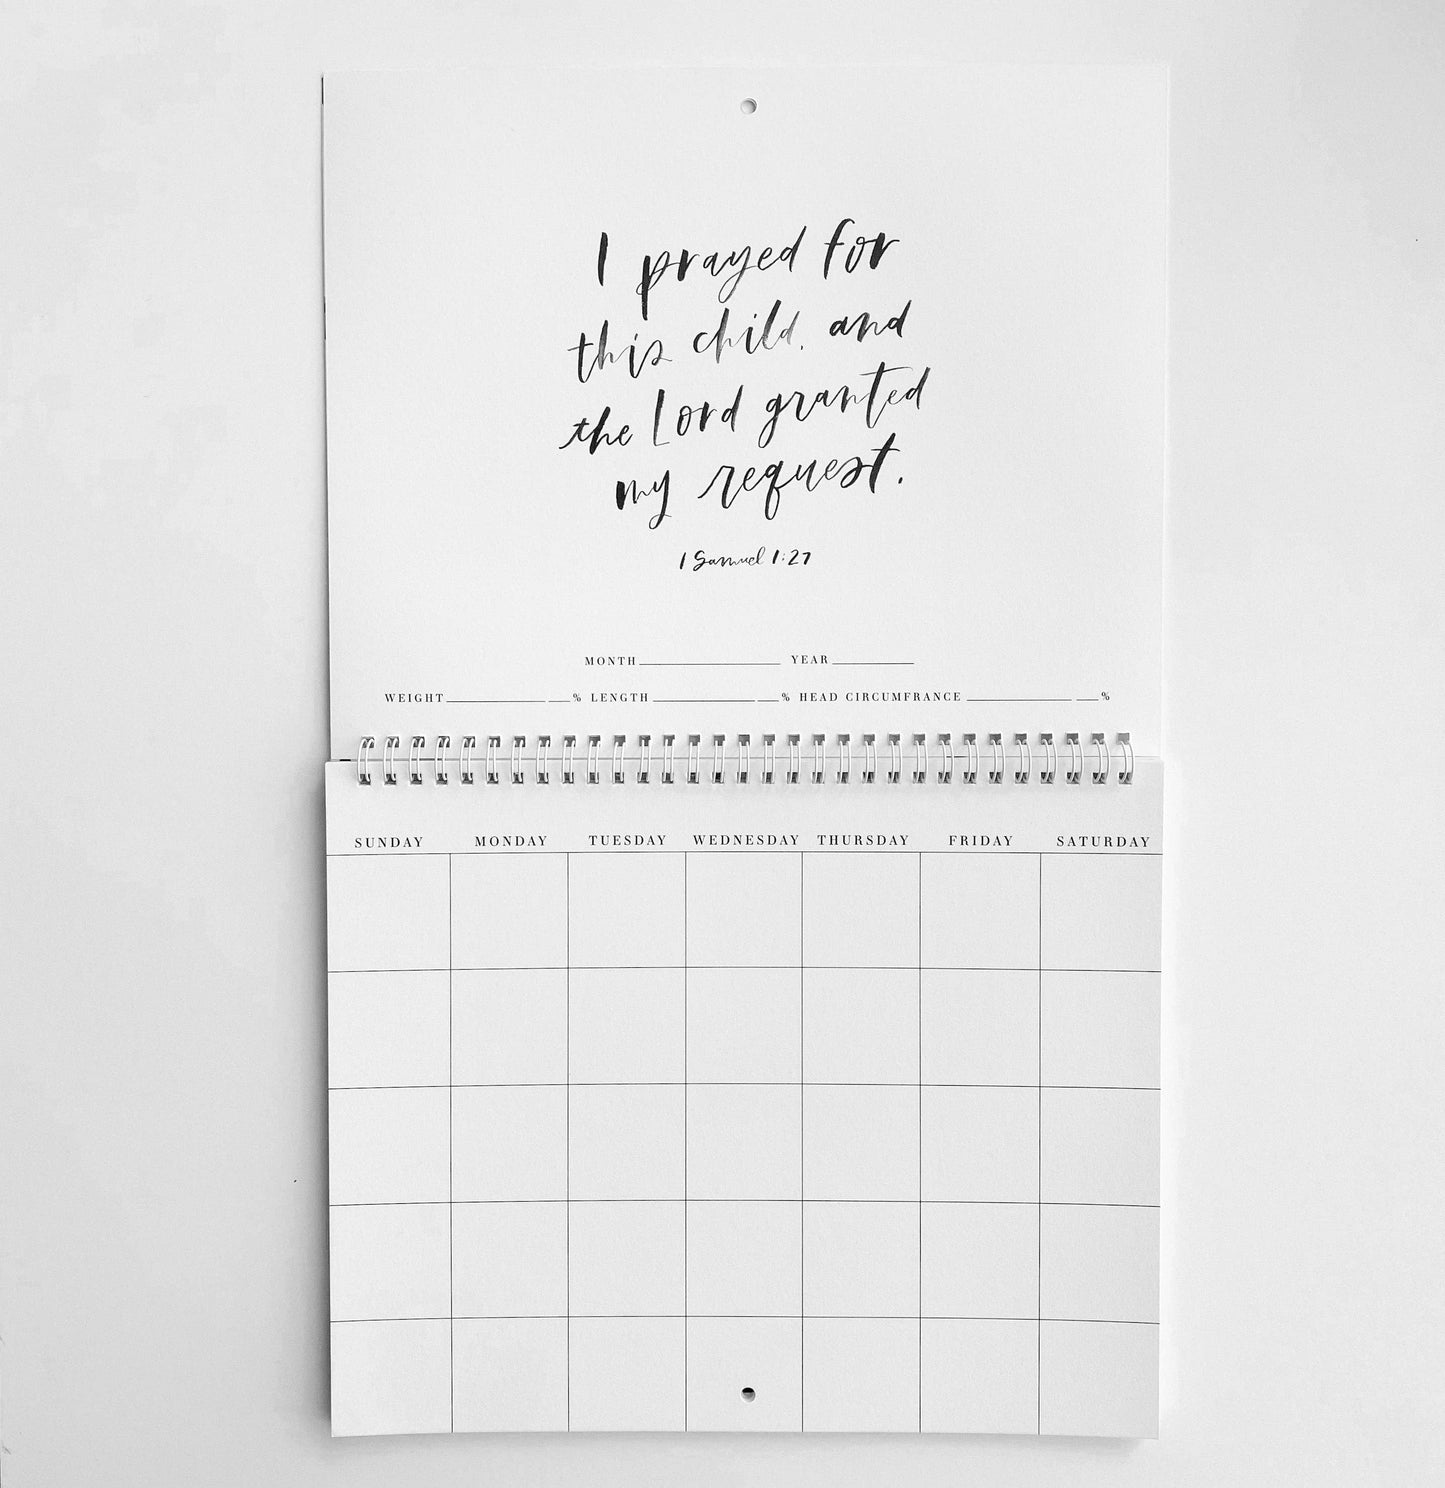 I prayed for
this child, and
the Lord granted
my request.
1 Samuel 1:27
MONTH YEAR
WEIGHT % LENGTH % HEAD CIRCUMFRANCE %
SUNDAY MONDAY TUESDAY WEDNESDAY THURSDAY FRIDAY SATURDAY